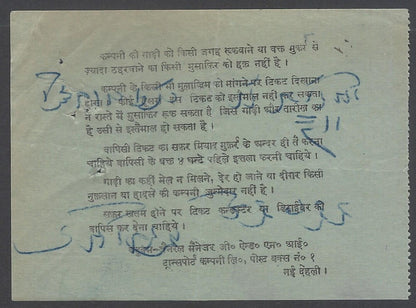 कम्पनी की गाड़ी को किसी जगह रुकवाने या वक्त मुक़र्रर से
ज़्यादा ठहरवाने का किसी मुसाफ़िर को हक़ नहीं है ।
कम्पनी के किसी भी मुलाज़िम को मांगने पर टिकट दिखाना
होगा । कोई दूसरा उस टिकट को इस्तेमाल नहीं कर सकता
न रास्ते में मुसाफ़िर रुक सकता है जिस गाड़ी और तारीख का
है उसी से इस्तेमाल हो सकता है ।
वापिसी टिकट का सफ़र मियाद मुक़र्रर के अन्दर ही तै करना
चाहिये वापिसी के वक्त ४ घन्टे पहिले इत्तला करनी चाहिये ।
गाड़ी का कहीं मेल न मिलने, देर हो जाने या दीगर किसी
नुक़सान या हादसे की कम्पनी जुम्मेवार नहीं है ।
सफ़र खतम होने पर टिकट कन्डक्टर या डिराईवर को
वापिस कर देना चाहिये ।
जनरल मैनेजर जी० ऐन्ड० एन० आई०
ट्रान्सपोर्ट कम्पनी लि०, पोस्ट बक्स नं० १
नई देहली ।